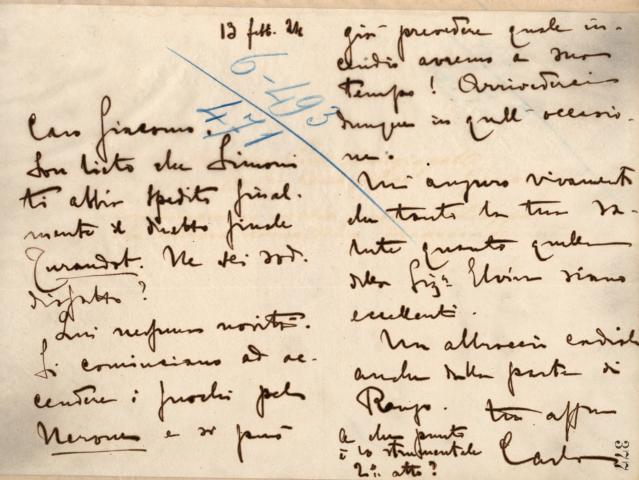 13 febb. 24
6-493
471
Caro Giacomo,
Son lieto che Simoni
ti abbia spedito final-
mente il duetto finale
Turandot. Ne sei sod-
disfatto?
Qui nessuna novità.
Si cominciano ad ac-
cendere i fuochi pel
Nerone e si può
già prevedere quale in-
cendio avremo a suo
tempo! Arrivederci
dunque in quell'occasio-
ne.
Mi auguro vivamente
che tanto la tua sa-
lute quanto quella
della Sig.ra Elvira siano
eccellenti.
Un abbraccio cordiale
anche dalla parte di
Renzo. tuo aff.mo
Carlo
A che punto
è lo strumentale
2º atto?
377